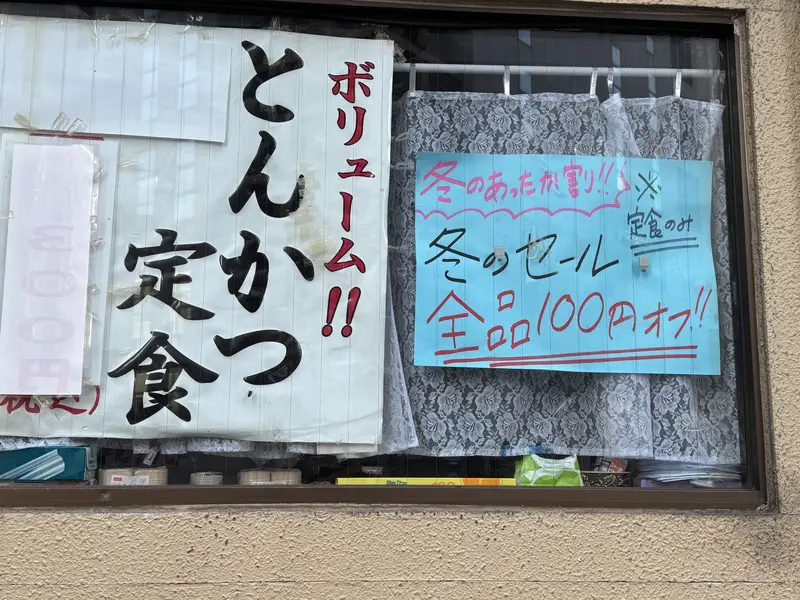 ボリューム!!
とんかつ
定食
税込)
冬のあったか割!!
※
定食のみ
冬のセール
全品100円オフ!!